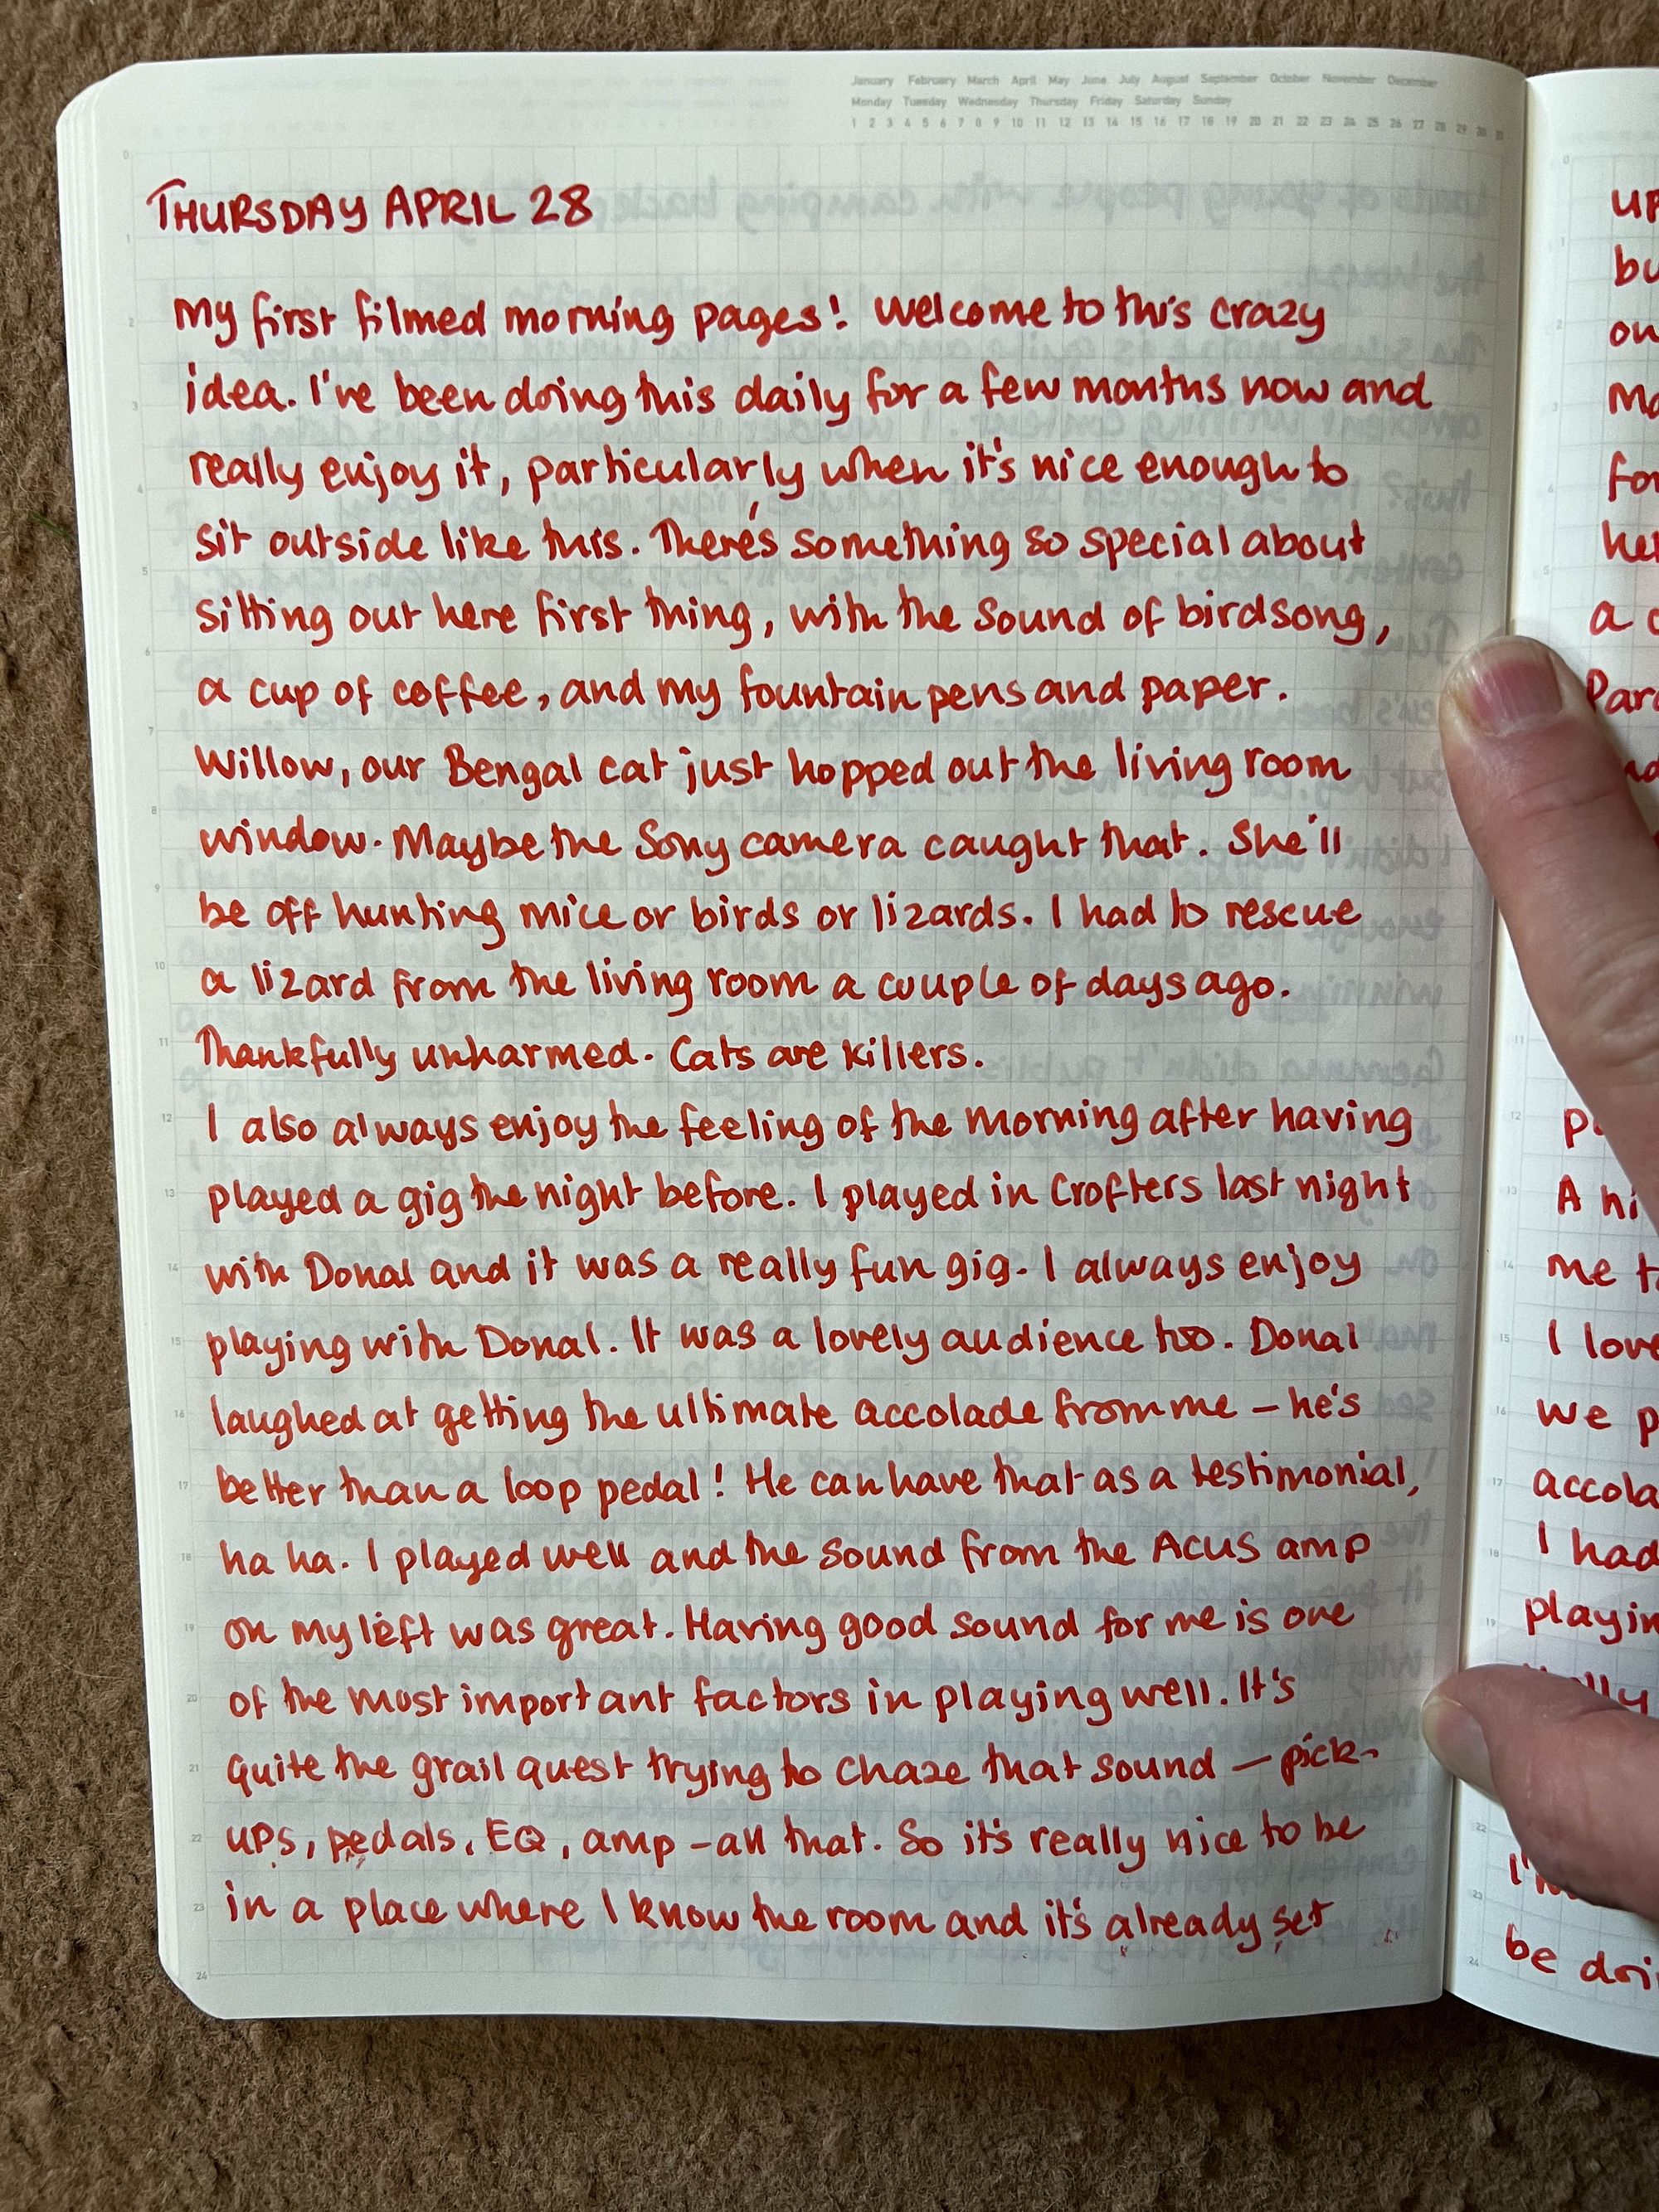 January February March April May June July August September October November December
Monday Tuesday Wednesday Thursday Friday Saturday Sunday
1 2 3 4 5 6 7 8 9 10 11 12 13 14 15 16 17 18 19 20 21 22 23 24 25 26 27 28 29 30 31
THURSDAY APRIL 28
My first filmed morning pages! Welcome to this crazy
idea. I've been doing this daily for a few months now and
really enjoy it, particularly when it's nice enough to
sit outside like this. There's something so special about
sitting out here first thing, with the sound of birdsong,
a cup of coffee, and my fountain pens and paper.
Willow, our Bengal cat just hopped out the living room
window. Maybe the Sony camera caught that. She'll
be off hunting mice or birds or lizards. I had to rescue
a lizard from the living room a couple of days ago.
Thankfully unharmed. Cats are killers.
I also always enjoy the feeling of the morning after having
played a gig the night before. I played in Crofters last night
with Donal and it was a really fun gig. I always enjoy
playing with Donal. It was a lovely audience too. Donal
laughed at getting the ultimate accolade from me – he's
better than a loop pedal! He can have that as a testimonial,
ha ha. I played well and the sound from the Acus amp
on my left was great. Having good sound for me is one
of the most important factors in playing well. It's
quite the grail quest trying to chase that sound – pick-
ups, pedals, EQ, amp – all that. So it's really nice to be
in a place where I know the room and it's already set
up
A
me
I love
we
I had
be